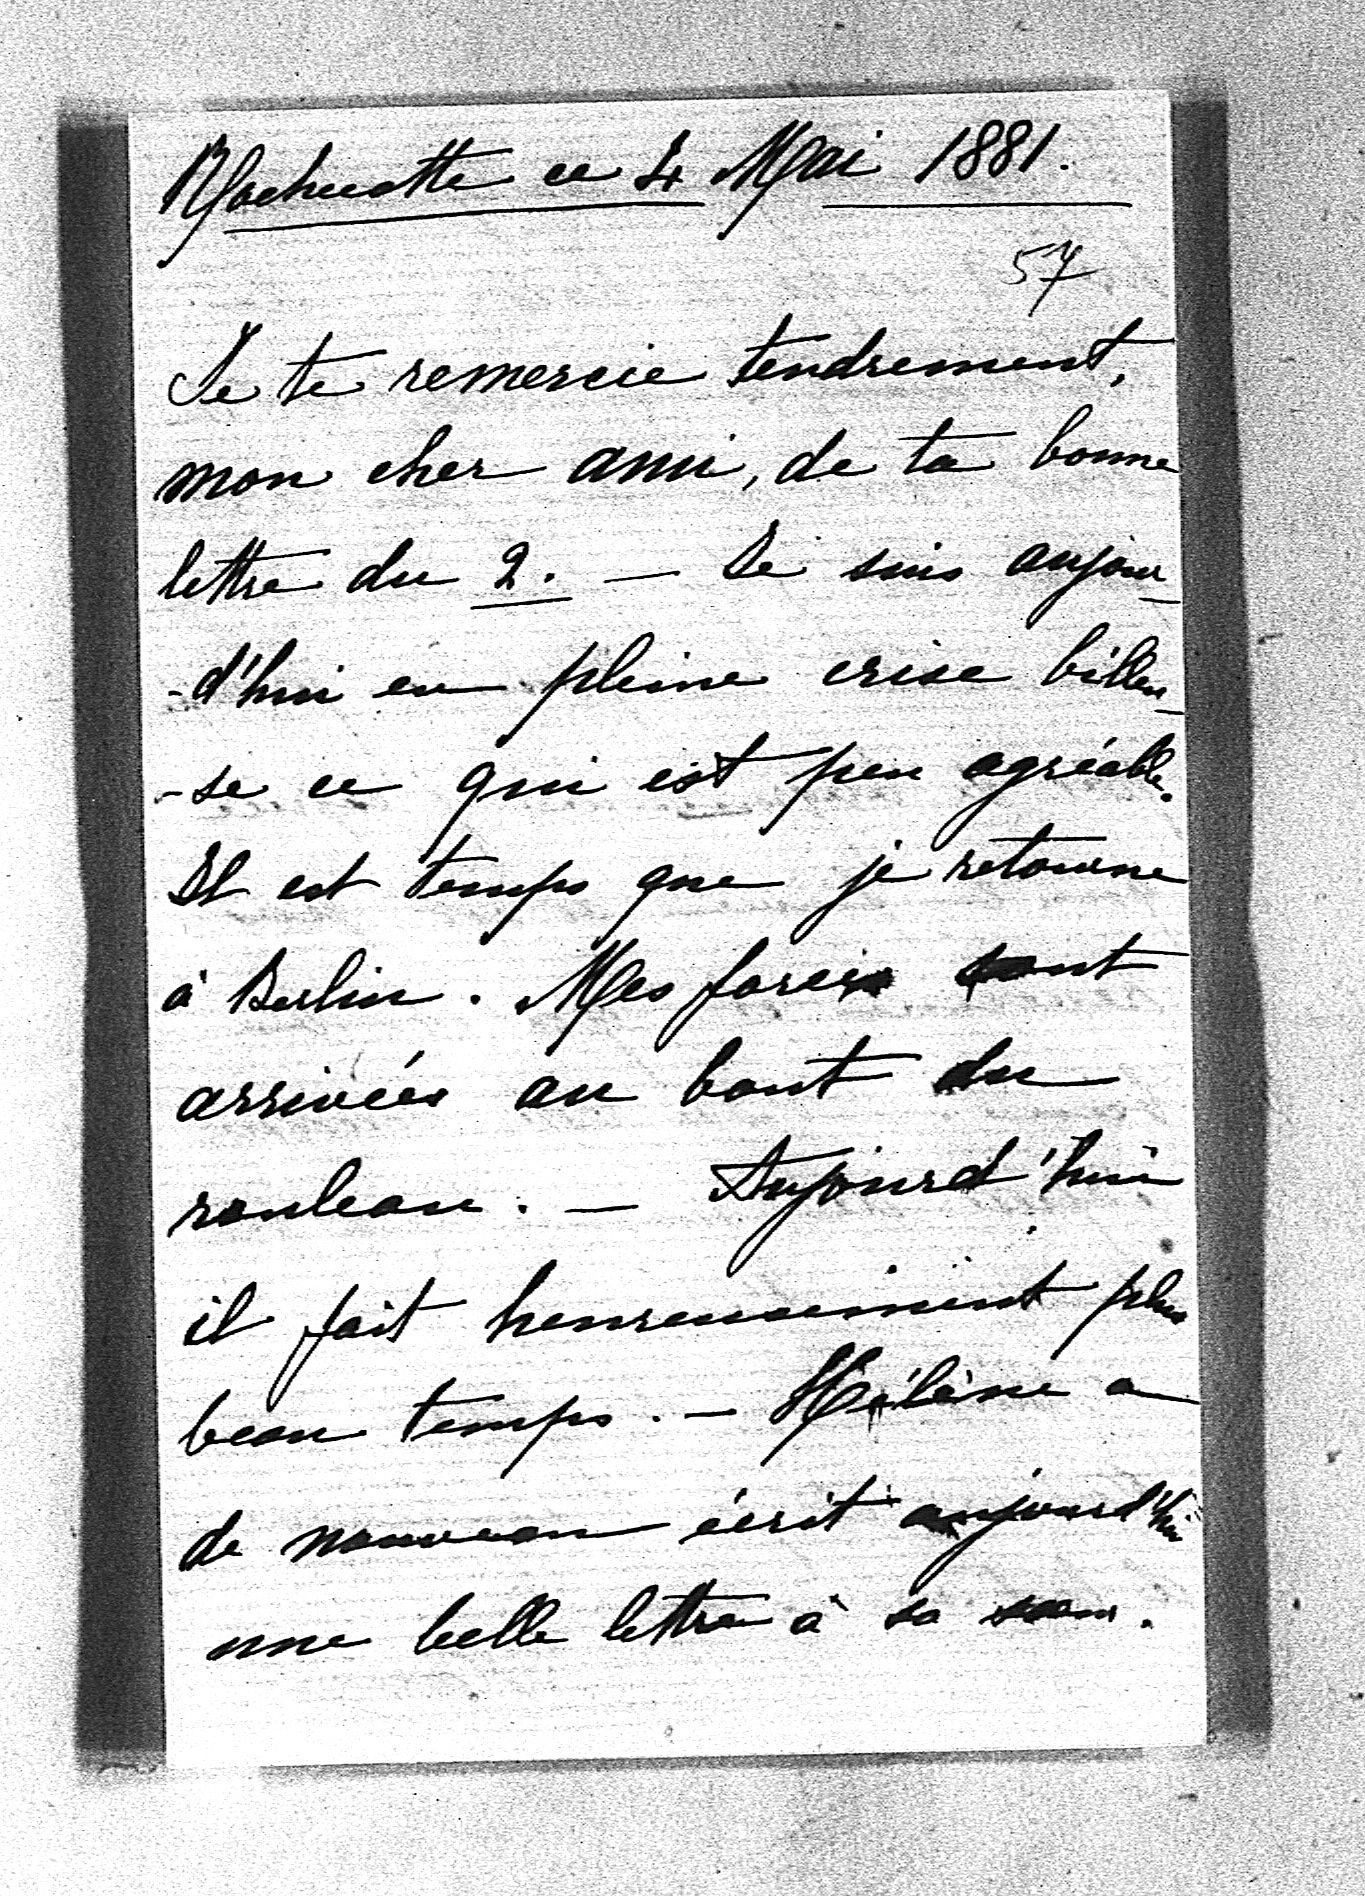 Rochecotte ce 4 Mai 1881.
57
Je te remercie tendrement,
mon cher ami, de ta bonne
lettre du 2. — Je suis aujour
-d'hui en pleine crise billeu
-se ce qui est peu agréable.
Il est temps que je retourne
à Berlin. Mes forces sont
arrivées au bout du
rouleau. — Aujourd'hui
il fait heureusement plus
beau temps. — Hélène a
de nouveau écrit aujourd'hui
une belle lettre à sa sœur.